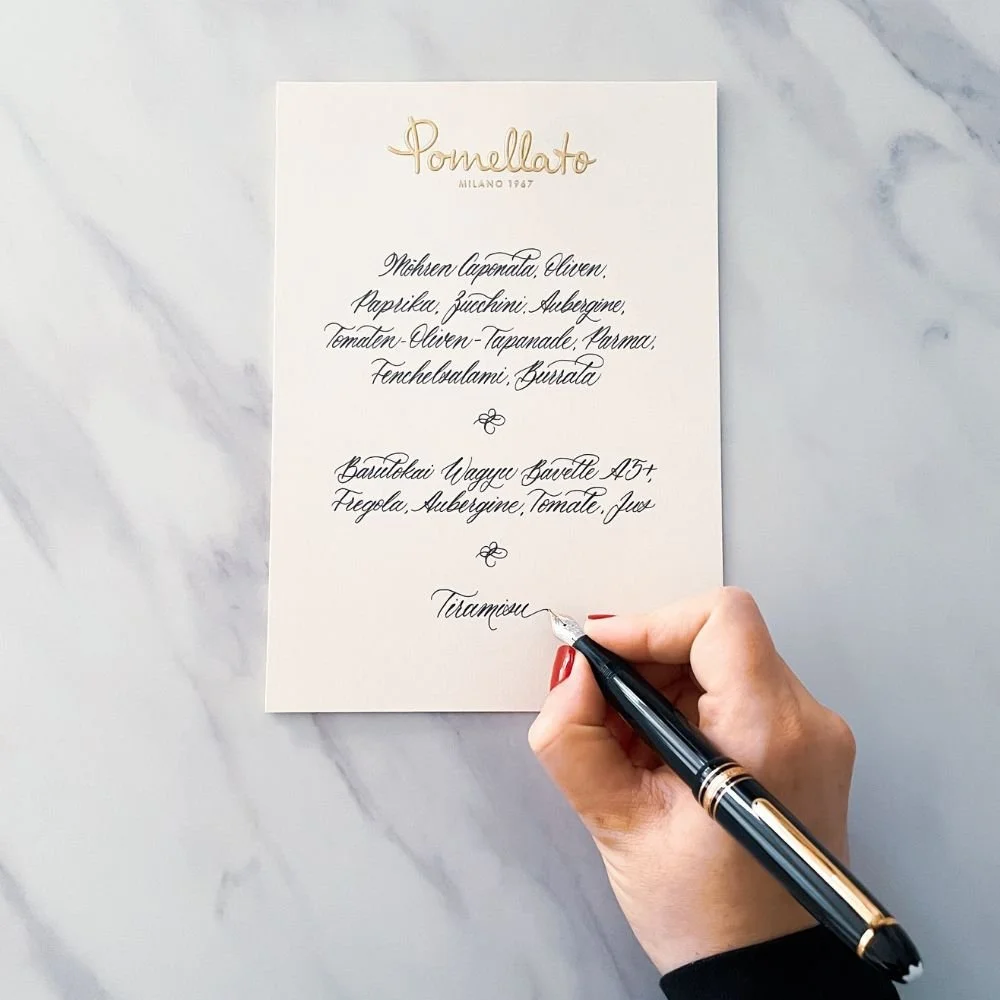 Pomellato
MILANO 1967
Möhren Caponata, Oliven,
Paprika, Zucchini, Aubergine,
Tomaten-Oliven-Tapanade, Parma,
Fenchelsalami, Burrata
Barutokai Wagyu Bavette A5+,
Fregola, Aubergine, Tomate, Jus
Tiramisu